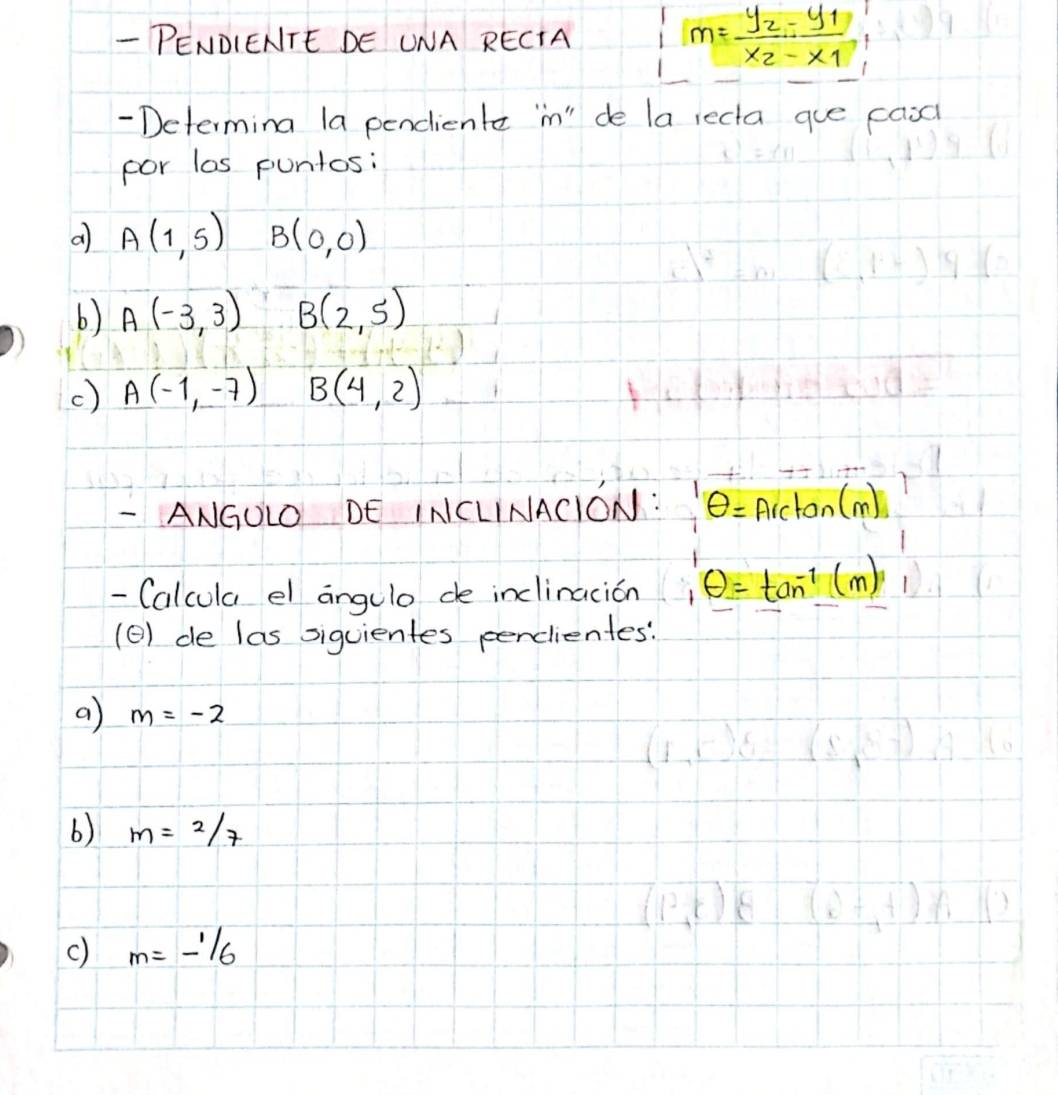 - PENDIENTE DE UNA RECTA
m = y2 - y1 / x2 - x1
- Determina la pendiente "m" de la recta que pasa
por los puntos:
a) A(1,5) B(0,0)
b) A(-3,3) B(2,5)
c) A(-1,-7) B(4,2)
- ANGULO DE INCLINACIÓN:
θ= Arctan(m)
θ= tan⁻¹ (m)
- Calcula el ángulo de inclinación
(θ) de las siguientes pendientes:
a) m = -2
b) m = 2/7
c) m = -1/6